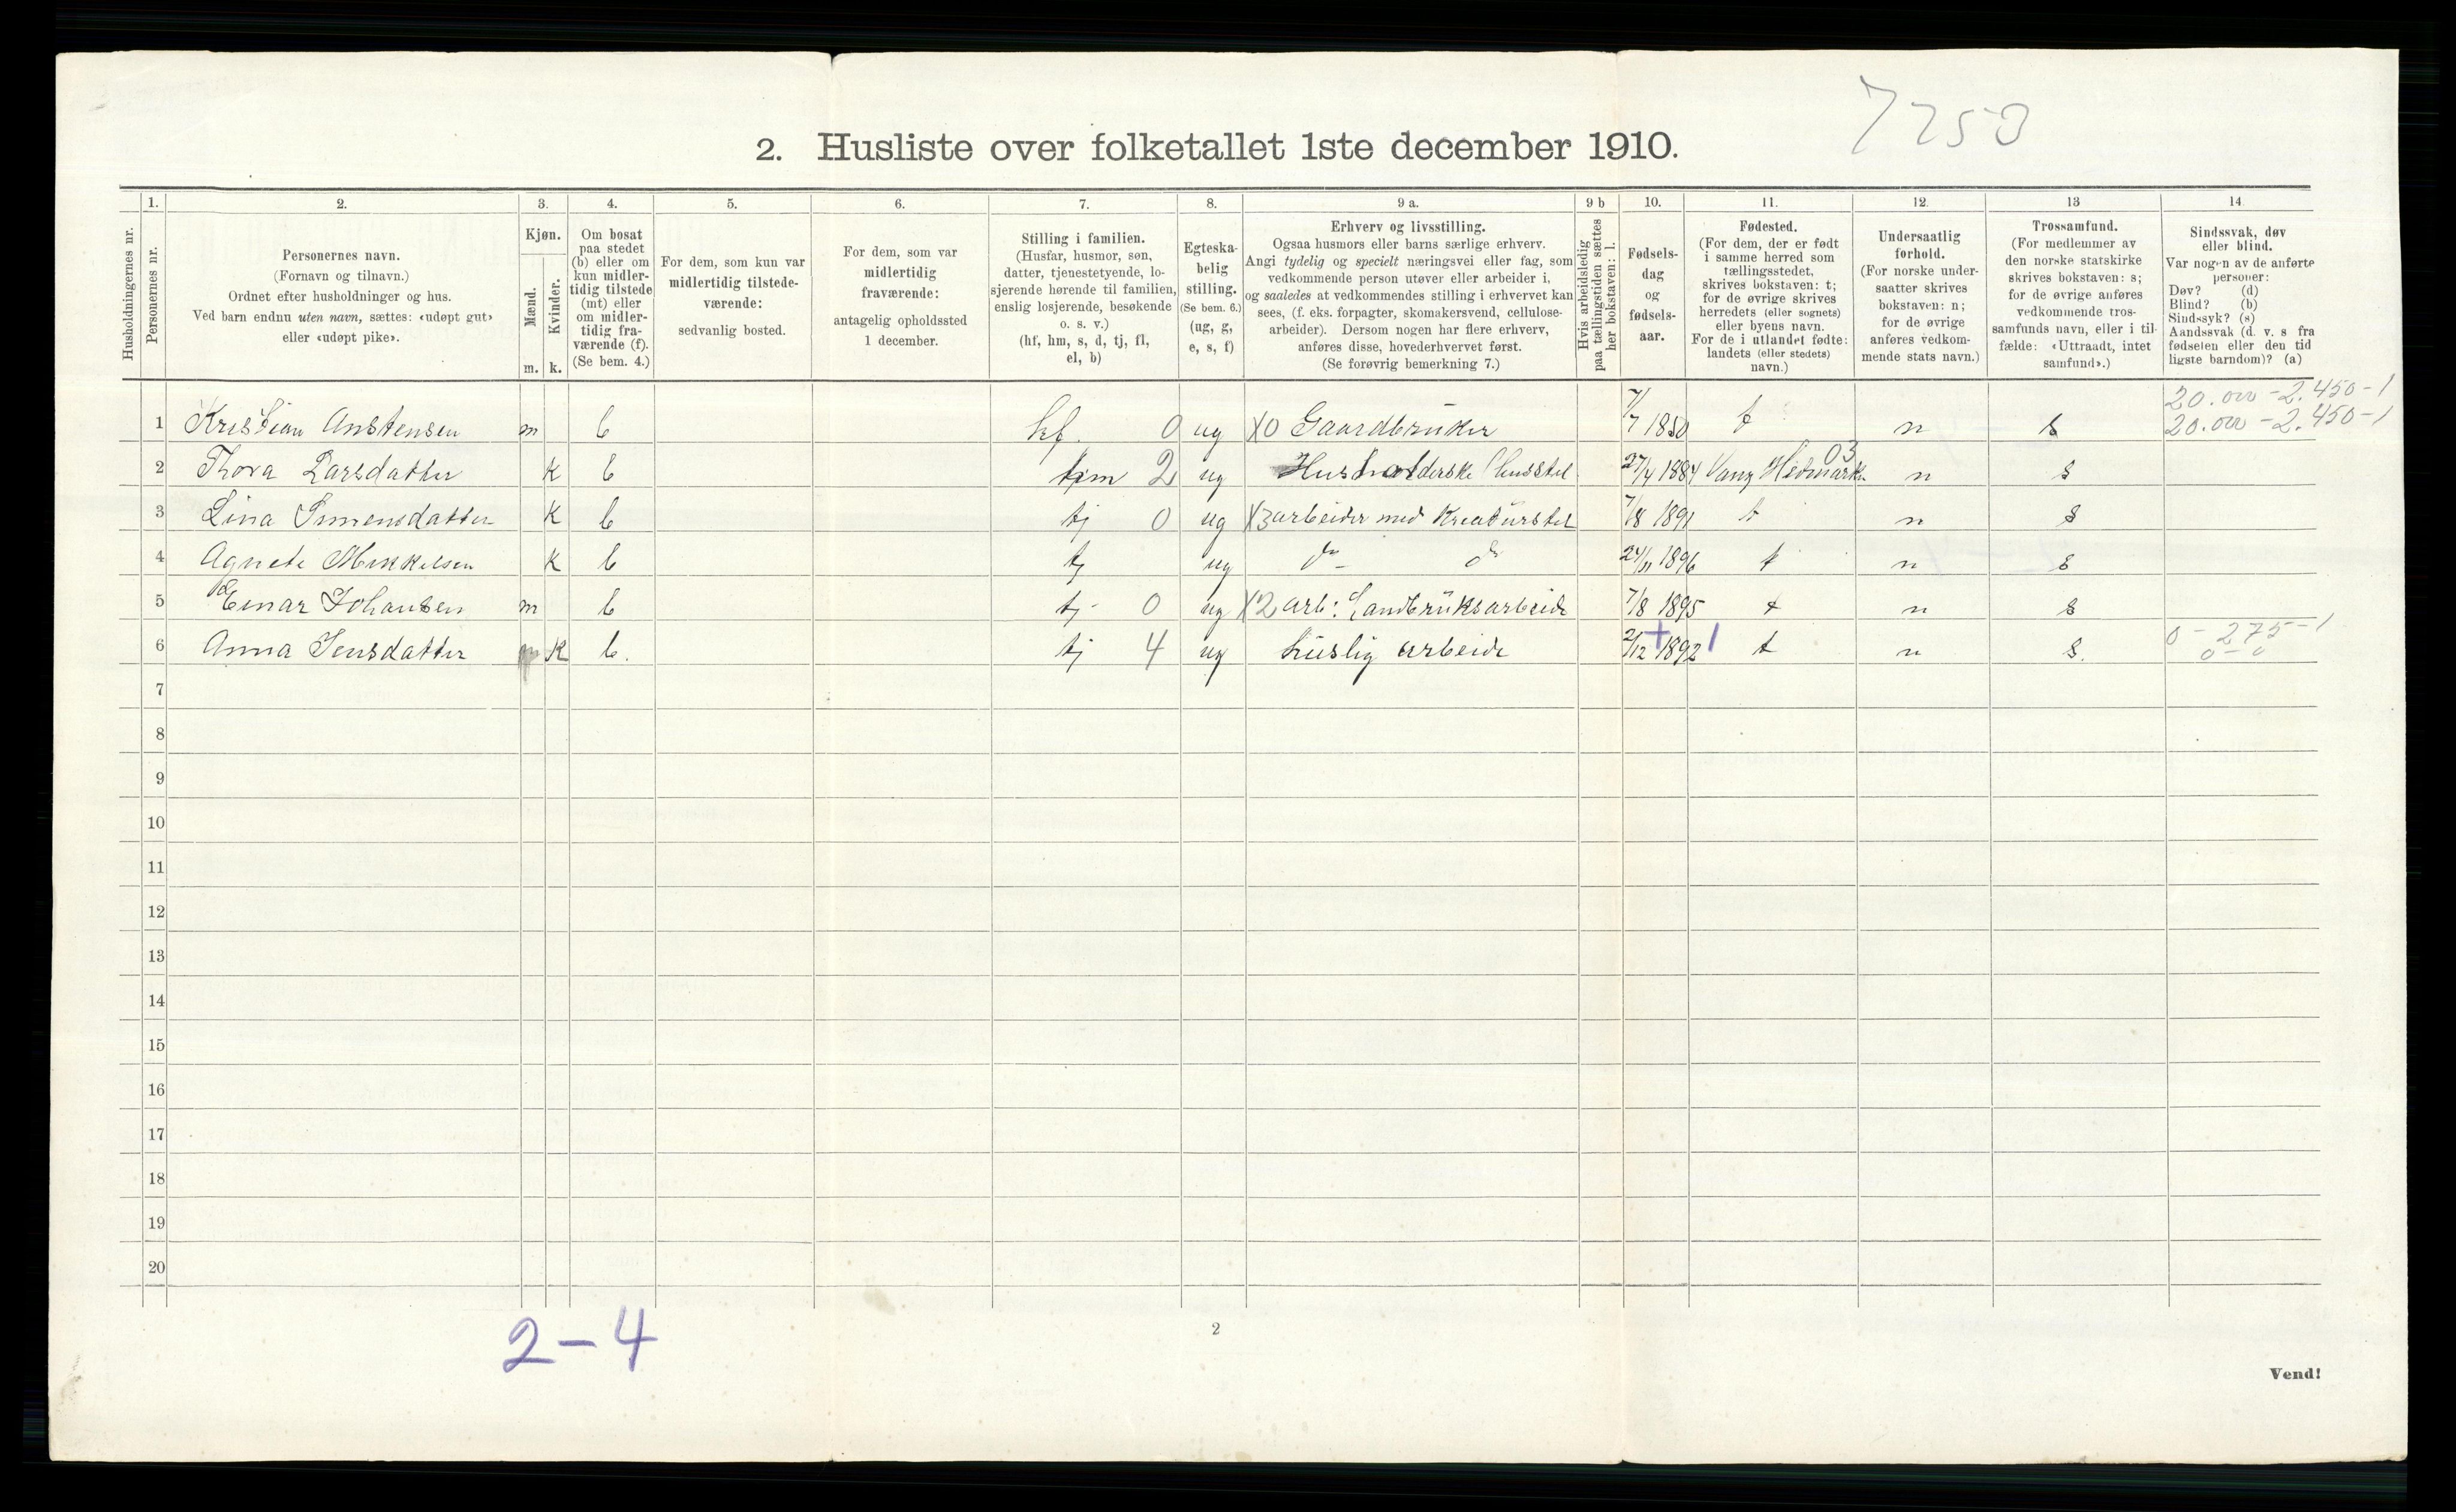 7250
2. Husliste over folketallet 1ste december 1910.
Husholdningernes nr.
1.
Personernes nr.
2.
Personernes navn.
(Fornavn og tilnavn.)
Ordnet efter husholdninger og hus.
Ved barn endnu uten navn, sættes: «udøpt gut»
eller «udøpt pike».
3.
Kjøn.
Mænd.
Kvinder.
m. k.
4.
Om bosat
paa stedet
(b) eller om
kun midler-
tidig tilstede
(mt) eller
om midler-
tidig fra-
værende (f).
(Se bem. 4.)
5.
For dem, som kun var
midlertidig tilstede-
værende:
sedvanlig bosted.
6.
For dem, som var
midlertidig
fraværende:
antagelig opholdssted
1 december.
7.
Stilling i familien.
(Husfar, husmor, søn,
datter, tjenestetyende, lo-
sjerende hørende til familien,
enslig losjerende, besøkende
o. s. v.)
(hf, hm, s, d, tj, fl,
el, b)
8.
Egteska-
belig
stilling.
(Se bem. 6.)
(ug, g,
e, s, f)
9 a.
Erhverv og livsstilling.
Ogsaa husmors eller barns særlige erhverv.
Angi tydelig og specielt næringsvei eller fag, som
vedkommende person utøver eller arbeider i,
og saaledes at vedkommendes stilling i erhvervet kan
sees, (f. eks. forpagter, skomakersvend, cellulose-
arbeider). Dersom nogen har flere erhverv,
anføres disse, hovederhvervet først.
(Se forøvrig bemerkning 7.)
9 b
Hvis arbeidsledig
paa tællingstiden sættes
her bokstaven: l.
10.
Fødsels-
dag
og
fødsels-
aar.
11.
Fødested.
(For dem, der er født
i samme herred som
tællingsstedet,
skrives bokstaven: t;
for de øvrige skrives
herredets (eller sognets)
eller byens navn.
For de i utlandet fødte:
landets (eller stedets)
navn.)
12.
Undersaatlig
forhold.
(For norske under-
saatter skrives
bokstaven: n;
for de øvrige
anføres vedkom-
mende stats navn.)
13
Trossamfund.
(For medlemmer av
den norske statskirke
skrives bokstaven: s;
for de øvrige anføres
vedkommende tros-
samfunds navn, eller i til-
fælde: «Uttraadt, intet
samfund».)
14
Sindssvak, døv
eller blind.
Var nogen av de anførte
personer:
Døv? (d)
Blind? (b)
Sindssyk? (s)
Aandssvak (d. v. s fra
fødselen eller den tid
ligste barndom)? (a)
20.000 - 2.450 - 1
1 Kristian Anstensen m b hf. 0 ug X0 Gaardbruker 7/7 1850 t n s 20.000 - 2.450 - 1
2 Thora Larsdatter k b 2 ug Husholderske husstel 27/4 1884 Vang Hedmarken 03 n s
3 Lina Simensdatter k b tj 0 ug X3 arbeider med Kreaturstel 7/8 1891 t n s
4 Agnete Mikkelsen k b tj ug do do 24/11 1896 t n s
5 Einar Johansen m b tj 0 ug X2 arb: Landbruksarbeide 7/8 1895 t n s
0 - 275 - 1
6 Anna Jensdatter k b. tj 4 ug huslig arbeide 2/12 + 1892 | t n s. 0 - 0
7
8
9
10
11
12
13
14
15
16
17
18
19
20
2 - 4
2
Vend!